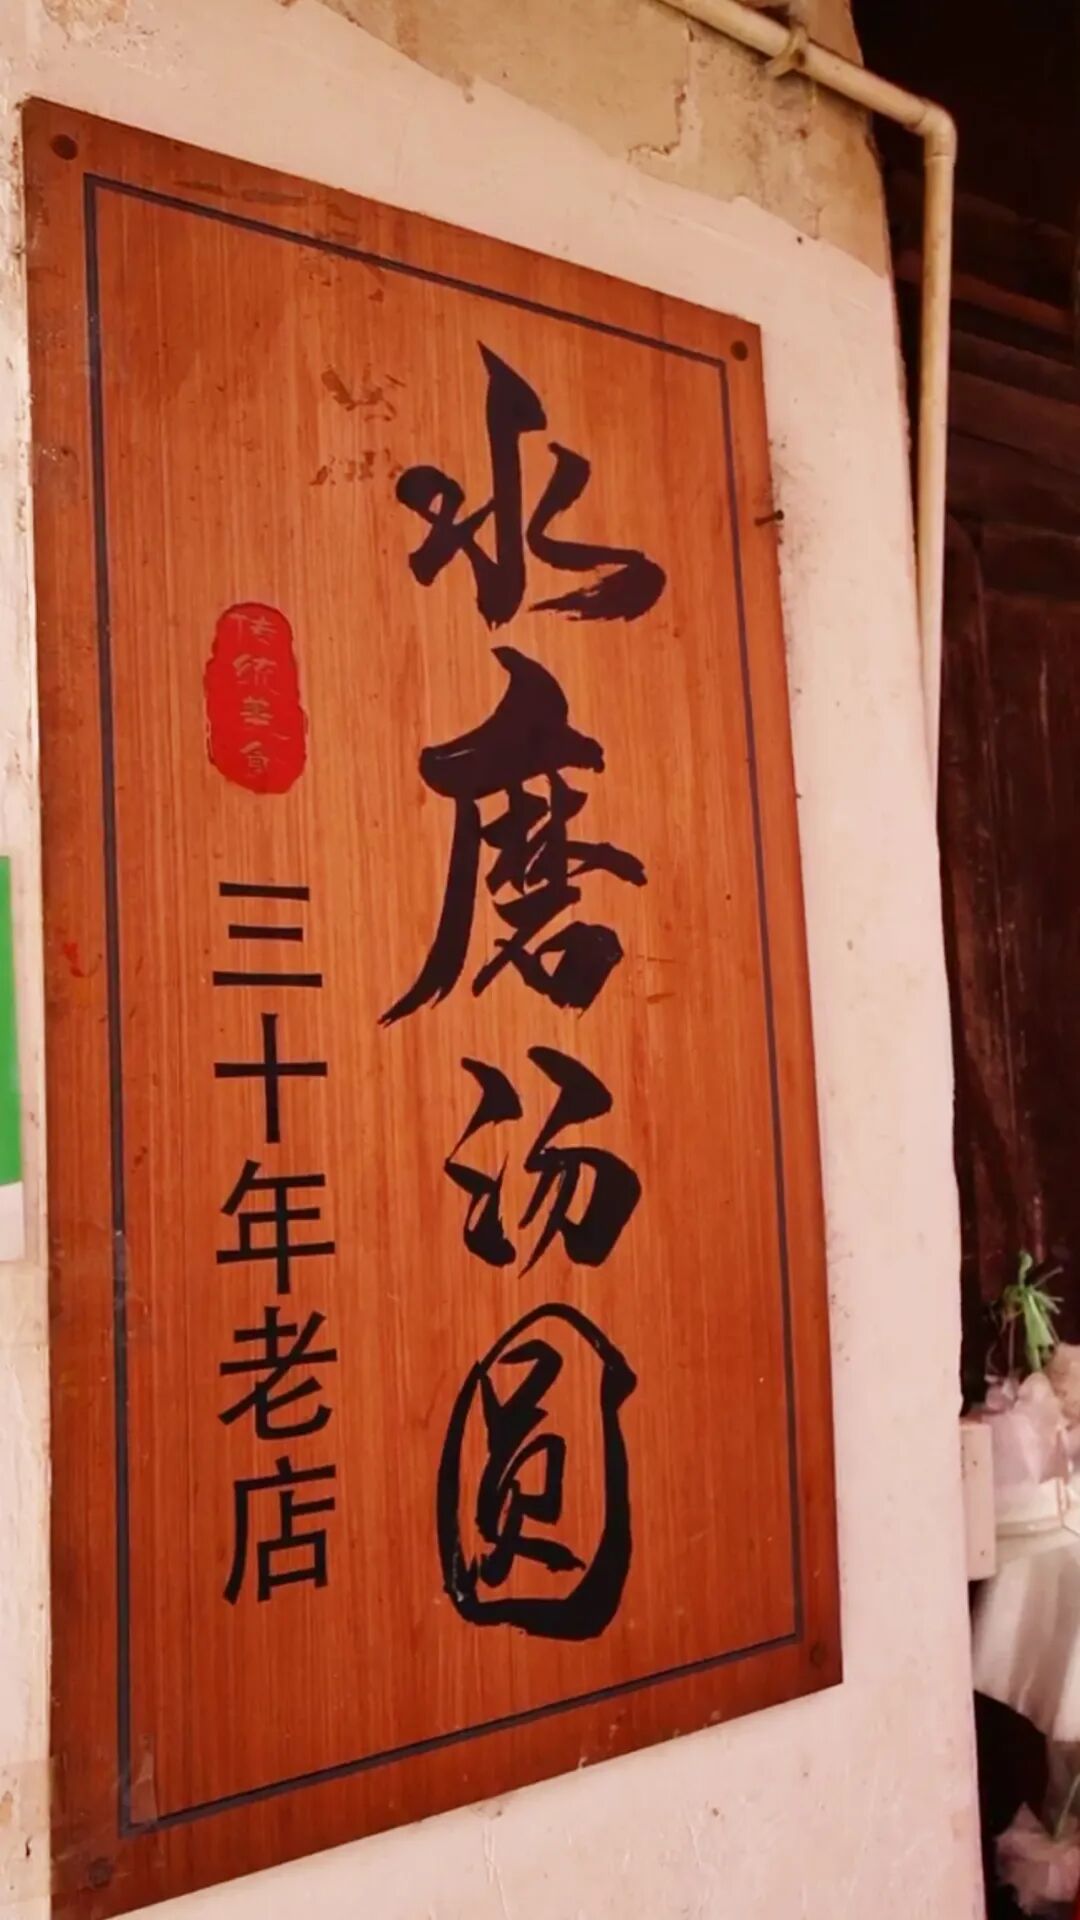 水磨汤圆
传统美食
三十年老店